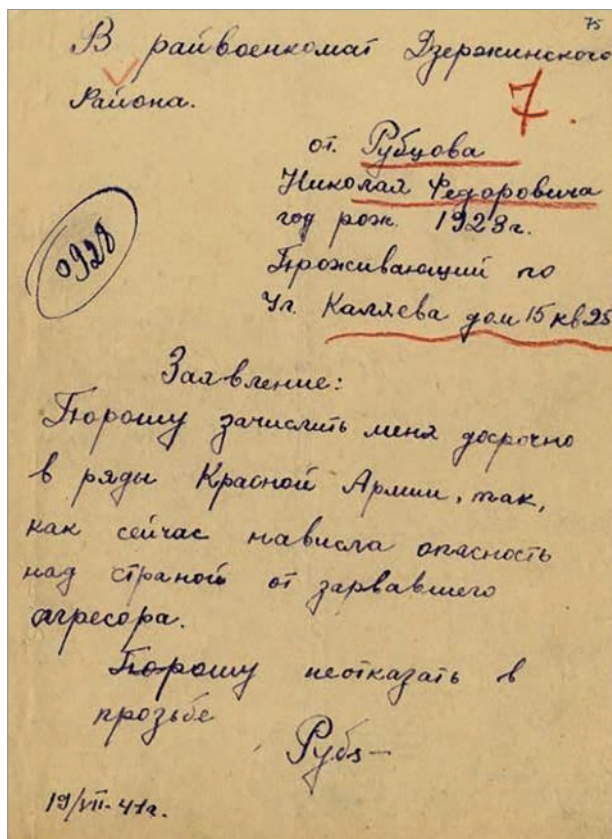 75
В райвоенкомат Дзержинского
Района.
7.
от. Рубцова
Николая Федоровича
год рож. 1923г.
Проживающий по
Ул. Каляева дом 15 кв 25
0928
Заявление:
Прошу зачислить меня досрочно
в ряды Красной Армии, так,
как сейчас нависла опасность
над страной от зарвавшего
агресора.
Прошу неотказать в
прозьбе
Рубз–
19/VII-41г.